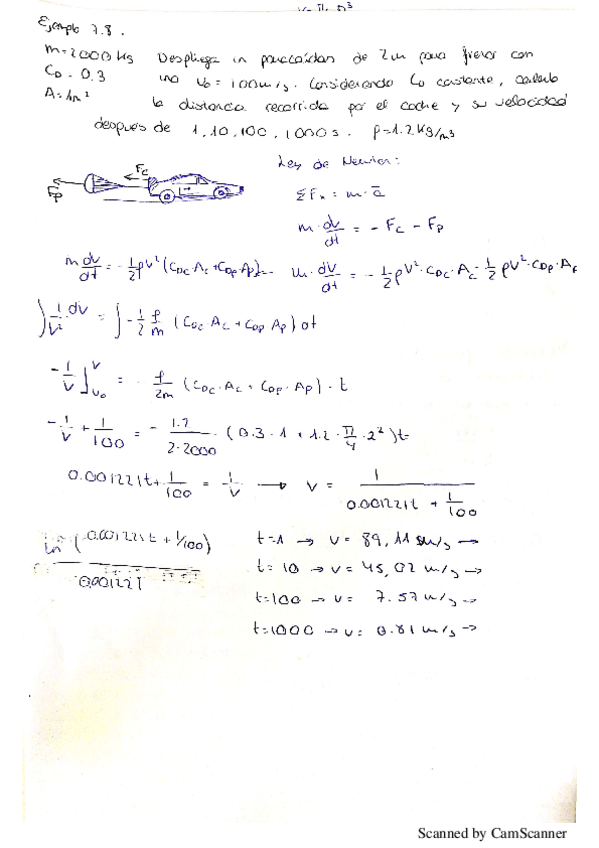 Ejemplo 7.8.
m=2000 Kg Despliega un paracaídas de 2m para frenar con
C_D = 0.3 una v₀ = 100m/s. Considerando C_D constante, calcule
A=1m² la distancia recorrida por el coche y su velocidad
después de 1, 10, 100, 1000s. ρ=1.2 Kg/m³
Ley de Newton:
Fc
Fp
ΣFx = m·a̅
m·dv/dt = - Fc - Fp
m dv/dt = - 1/2 ρV² (C_DC·Ac + C_DP·Ap) m· dV/dt = - 1/2 ρV²·C_DC·Ac - 1/2 ρV²·C_DP·Ap
∫ 1/V² dv = ∫ - 1/2 ρ/m (C_DC Ac + C_DP Ap) dt
- 1/V ]ᵛᵥ₀ = - ρ/2m (C_DC·Ac + C_DP·Ap)·t
- 1/V + 1/100 = - 1.2/2·2000 · (0.3·1 + 1.2·π/4·2²)t
0.001221t + 1/100 = 1/V → V = 1/(0.001221t + 1/100)
ln (0.001221t + 1/100) / 0.001221
t=1 → V = 89,11 m/s →
t=10 → V = 45,02 m/s →
t=100 → V = 7.57 m/s →
t=1000 → V = 0.81 m/s →
Scanned by CamScanner